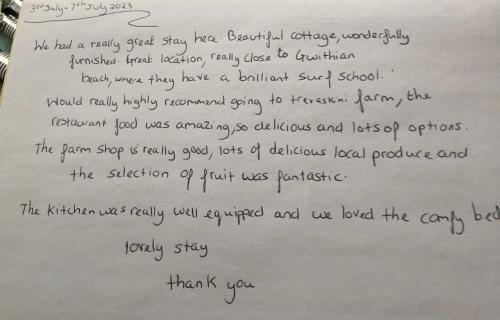 3rd July - 7th July 2023
We had a really great stay here. Beautiful cottage, wonderfully
furnished. Great location, really close to Gwithian
beach, where they have a brilliant surf school.
Would really highly recommend going to trevaskini farm, the
restaurant food was amazing, so delicious and lots of options.
The farm shop is really good, lots of delicious local produce and
the selection of fruit was fantastic.
The kitchen was really well equipped and we loved the comfy bed
lovely stay
thank you